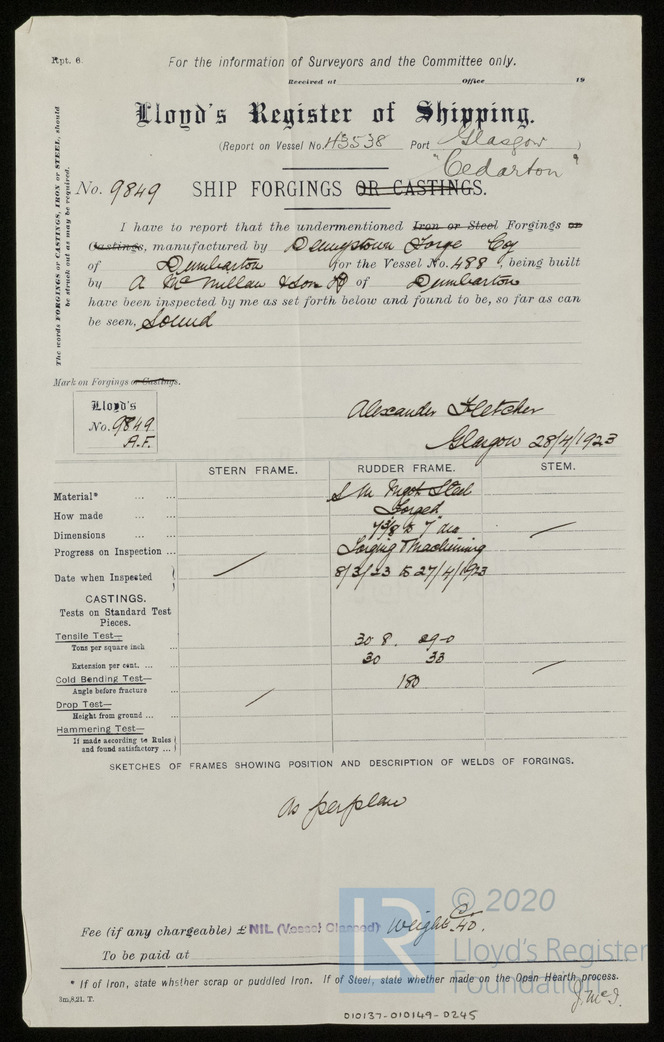 Rpt. 6.
For the information of Surveyors and the Committee only.
Received at Office 19
Lloyd's Register of Shipping.
(Report on Vessel No. 43538 Port Glasgow )
"Cedarton"
No. 9849 SHIP FORGINGS OR CASTINGS.
The words FORGINGS or CASTINGS, IRON or STEEL, should
be struck out as may be required.
I have to report that the undermentioned Iron or Steel Forgings or
Castings, manufactured by Dennystown Forge Coy
of Dumbarton for the Vessel No. 488, being built
by A McMillan & Son Ld of Dumbarton
have been inspected by me as set forth below and found to be, so far as can
be seen, Sound
Mark on Forgings or Castings.
Lloyd's
No. 9849
A.F.
Alexander Fletcher
Glasgow 28/4/1923
STERN FRAME. RUDDER FRAME. STEM.
Material* ... ... S M Ingot Steel
How made ... ... Forged
Dimensions ... ... 7 3/8 to 7" dia
Progress on Inspection ... Forging & Machining
Date when Inspected 8/3/23 to 27/4/1923
CASTINGS.
Tests on Standard Test
Pieces.
Tensile Test—
Tons per square inch 30.8. 29.0
Extension per cent. ... ... 30 33
Cold Bending Test—
Angle before fracture ... 180
Drop Test—
Height from ground ... ...
Hammering Test—
If made according to Rules
and found satisfactory ...
SKETCHES OF FRAMES SHOWING POSITION AND DESCRIPTION OF WELDS OF FORGINGS.
As per plan
Fee (if any chargeable) £ NIL (Vessel Classed) Weight 40.
To be paid at
* If of Iron, state whether scrap or puddled Iron. If of Steel, state whether made on the Open Hearth process.
3m,8,21. T.
J.McI.
© 2020
Lloyd's Register
Foundation
LR
010137-010149-0245